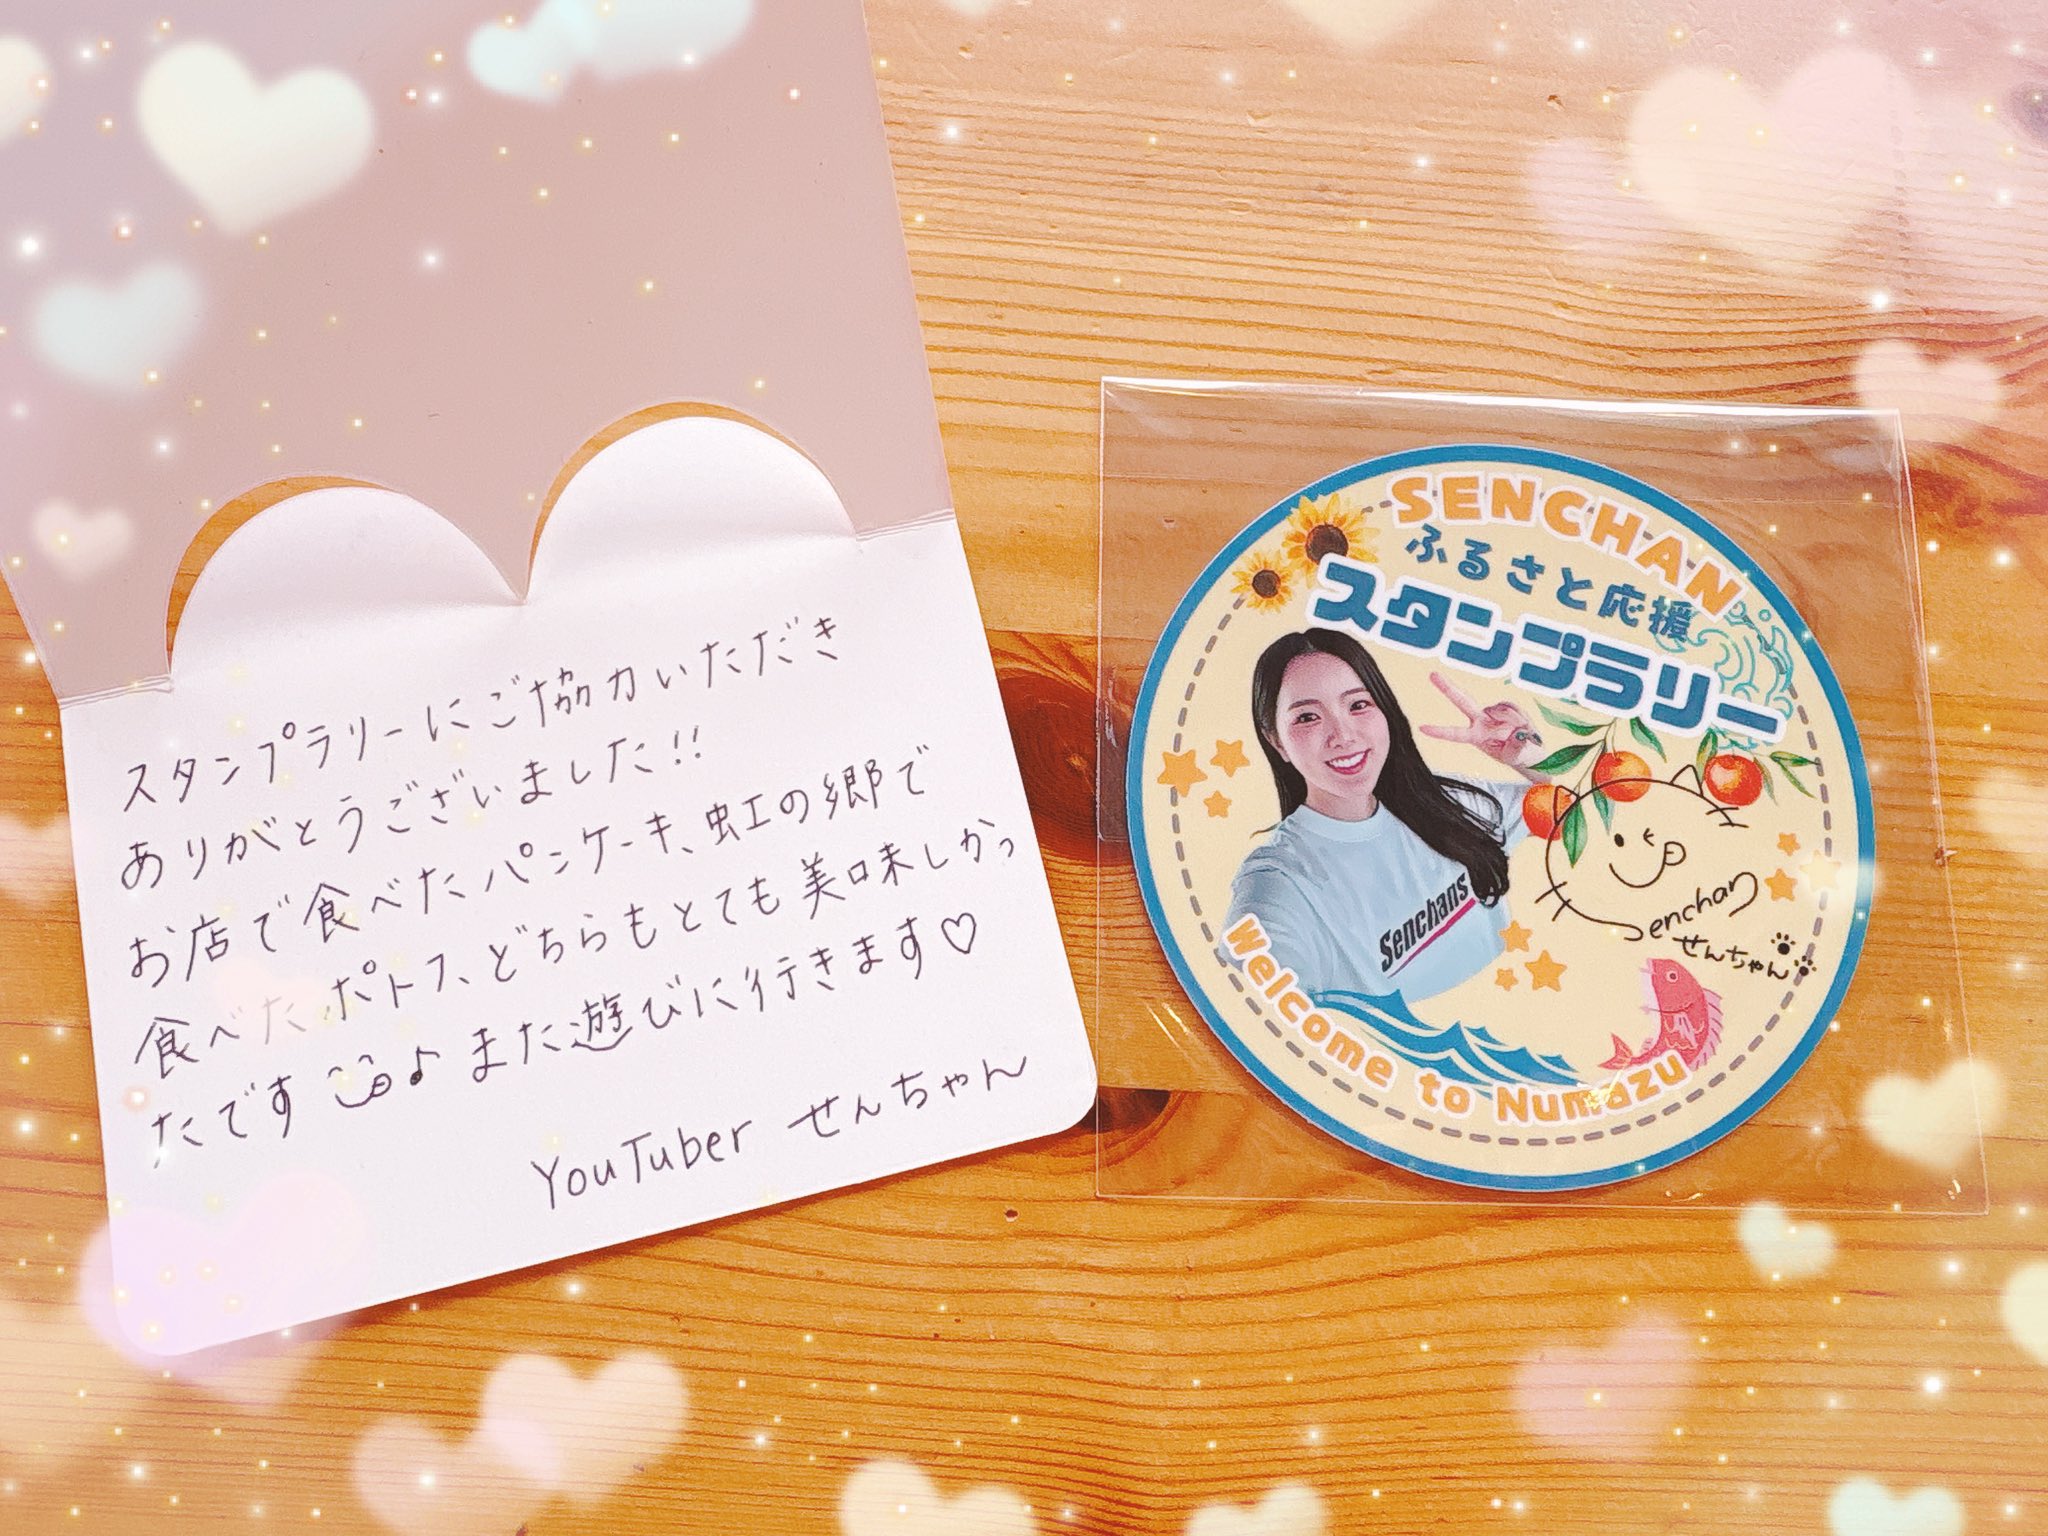 スタンプラリーにご協力いただき
ありがとうございました!!
お店で食べたパンケーキ、虹の郷で
食べたポトフ、どちらもとても美味しかっ
たです♪また遊びに行きます♡
YouTuber せんちゃん
SENCHAN
ふるさと応援
スタンプラリー
Senchans
Senchan
せんちゃん
Welcome to Numazu